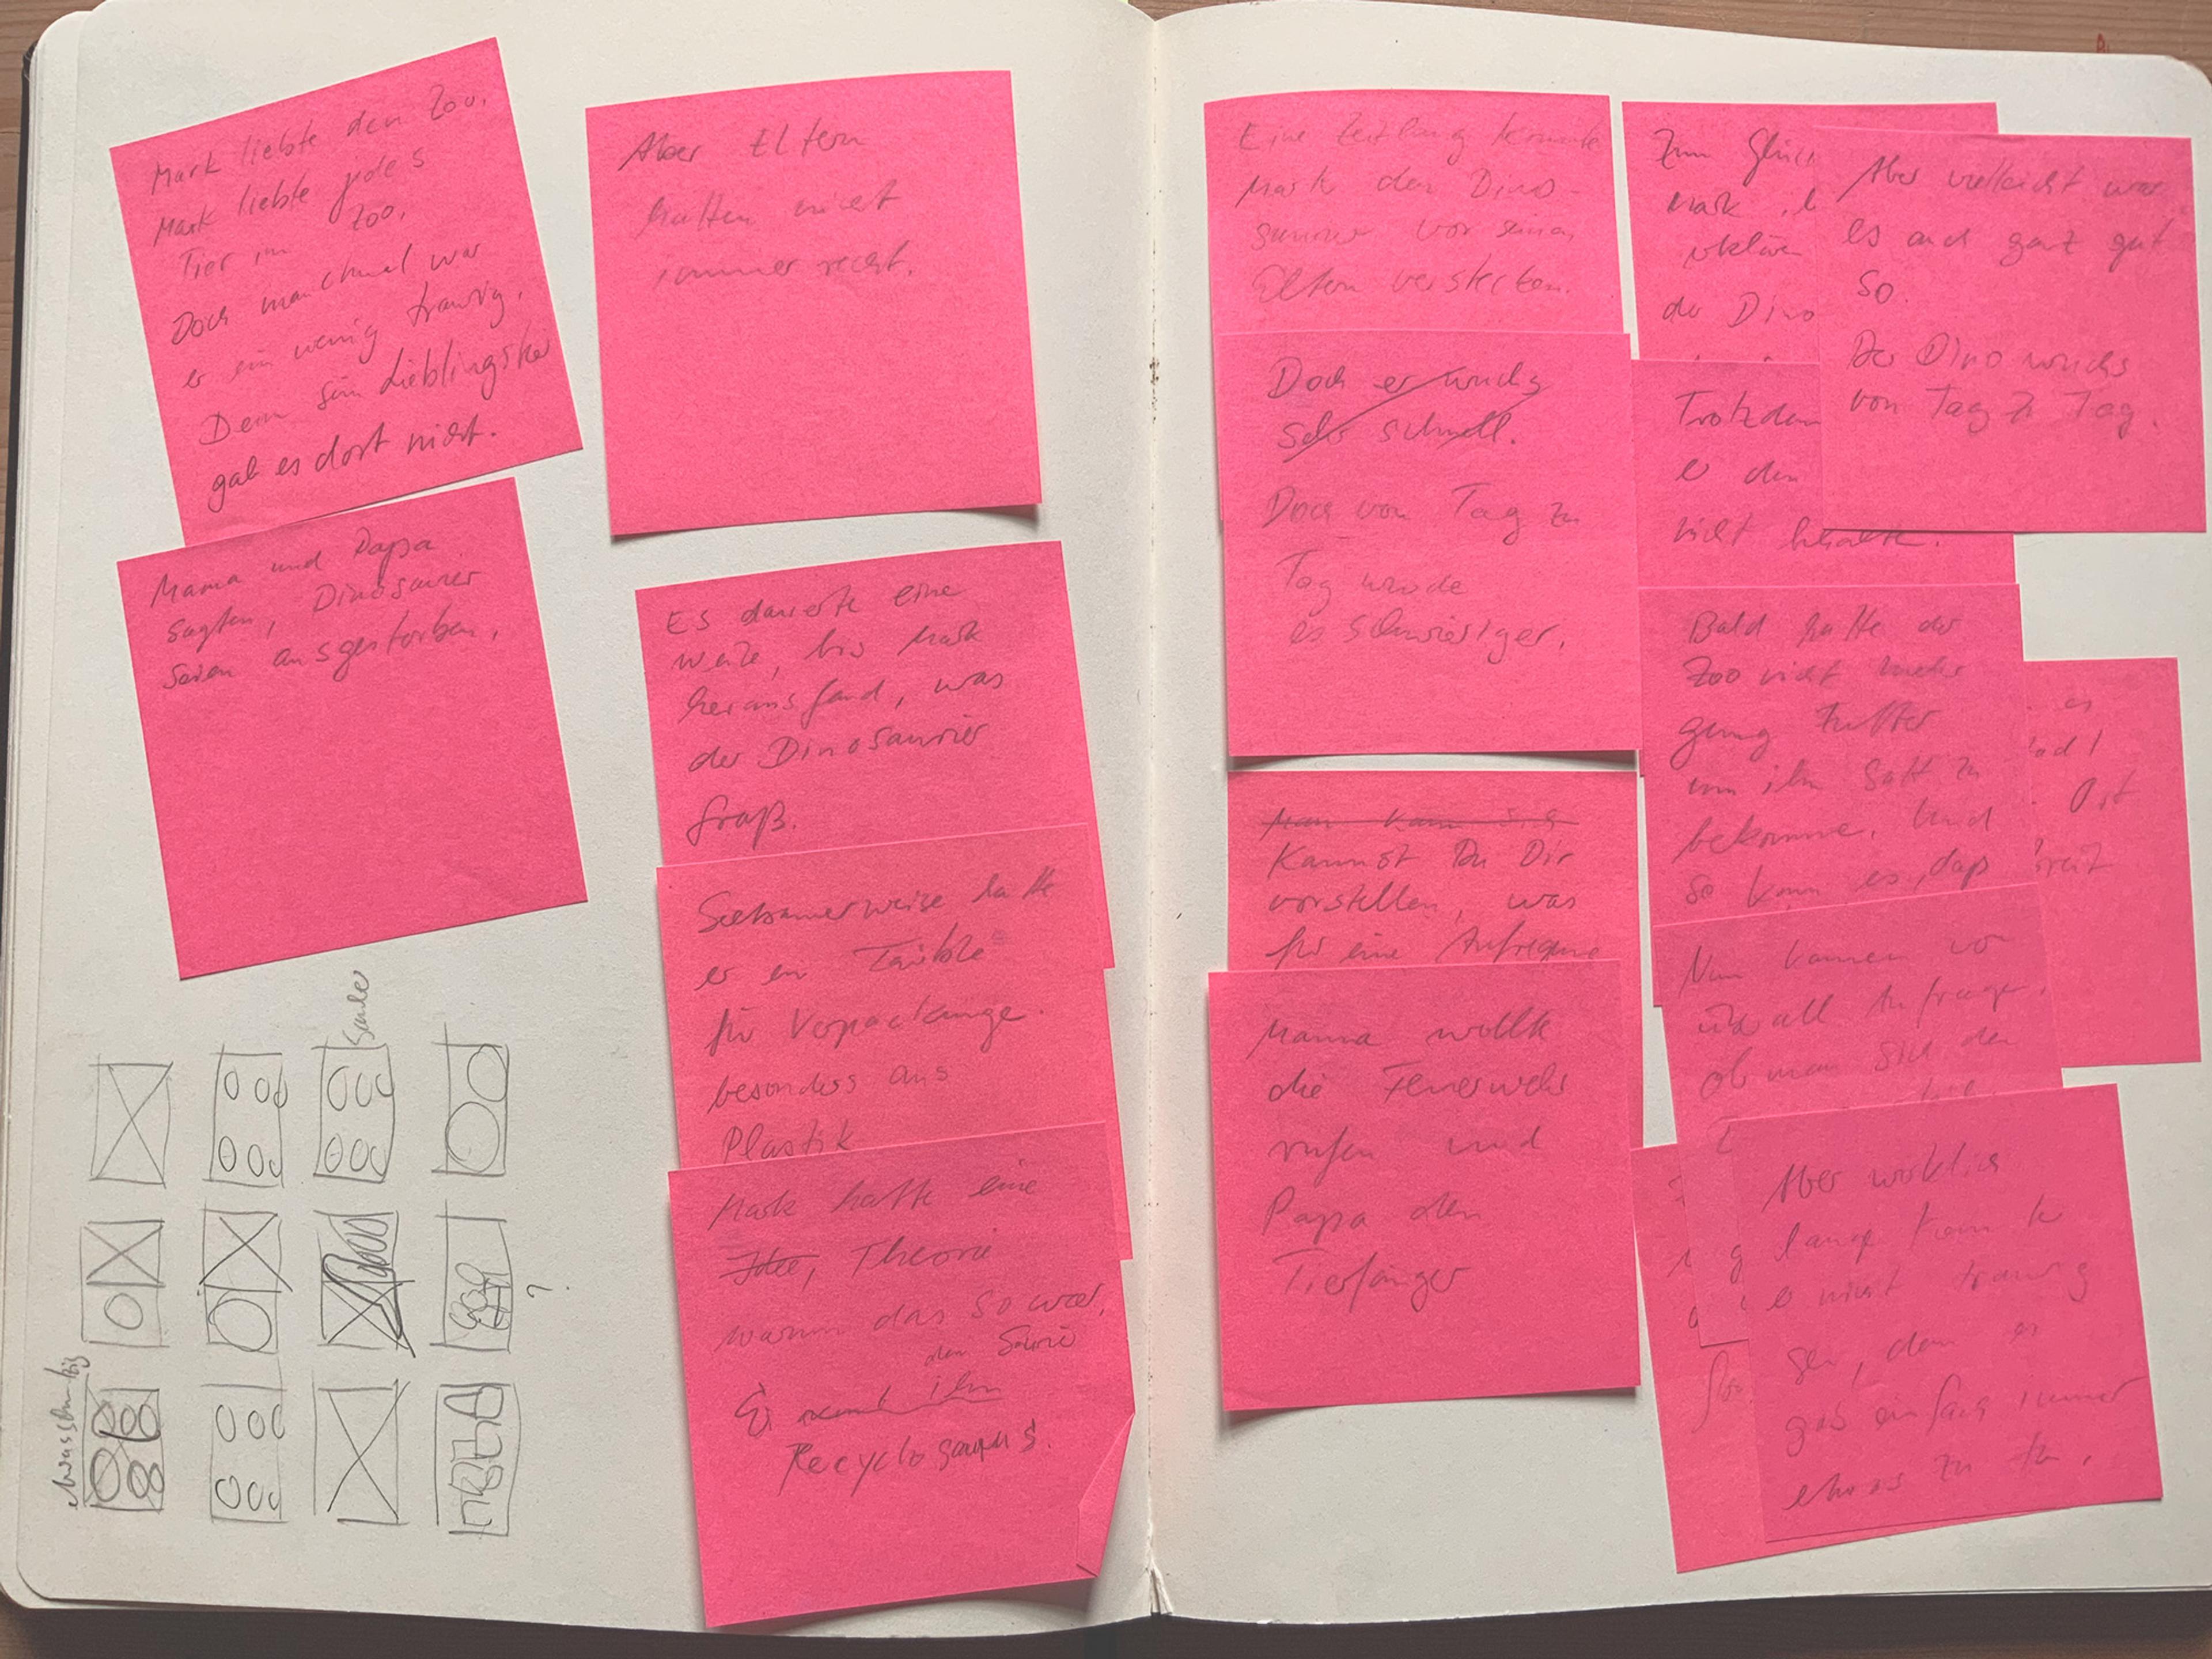 Mark liebte den Zoo.
Mark liebte jedes
Tier im Zoo.
Doch manchmal war
er ein wenig traurig.
Denn sein Lieblingstier
gab es dort nicht.
Mama und Papa
sagten, Dinosaurier
seien ausgestorben.
Aber Eltern
hatten nicht
immer recht.
Es dauerte eine
weile, bis Mark
herausfand, was
der Dinosaurier
fraß.
Seltsamerweise hatte
er ein
für Verpackunge.
besonders aus
Plastik
Mark hatte eine
Idee, Theorie
warum das so war.
den Saurier
Er nannte ihn
Recyclosaurus.
Schule
?
Eine Zeit lang konnte
Mark den Dino-
saurier vor seinen
Eltern verstecken.
Doch er wuchs
sehr schnell.
Doch von Tag zu
Tag wurde
es schwieriger.
Man kann sich
Kannst Du Dir
vorstellen, was
für eine Aufregung
Mama wollte
die Feuerwehr
rufen und
Papa den
Tierfänger
Zum Glück
Mark
erklären
der Dino
Trotzdem
er den
nicht behalten.
Aber vielleicht war
es auch ganz gut
so.
Der Dino wuchs
von Tag zu Tag.
Bald hatte der
Zoo nicht mehr
genug Futter
um ihn satt zu
bekomme. Und
so kam es, daß
es
Ort
Nun kamen von
überall Anfragen,
ob man sich den
Aber wirklich
lange konnte
er nicht traurig
sein, denn es
gab einfach immer
etwas zu tun.